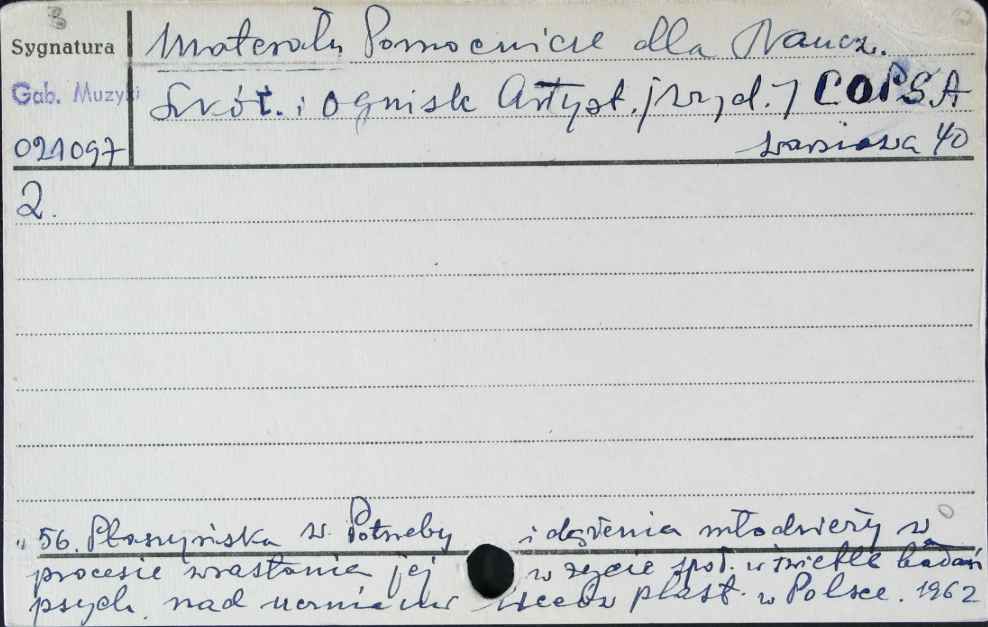 Sygnatura
Materiały Pomocnicze dla Naucz.
Gab. Muzyki
Szkół. i Ognisk Artyst. / wyd. / COPSA
021097
Warszawa 40
2.
56. Płoszyńska W. Potrzeby i dążenia młodzieży w
procesie wrastania jej w życie społ. w świetle badań
psych. nad uczniami liceów plast. w Polsce. 1962